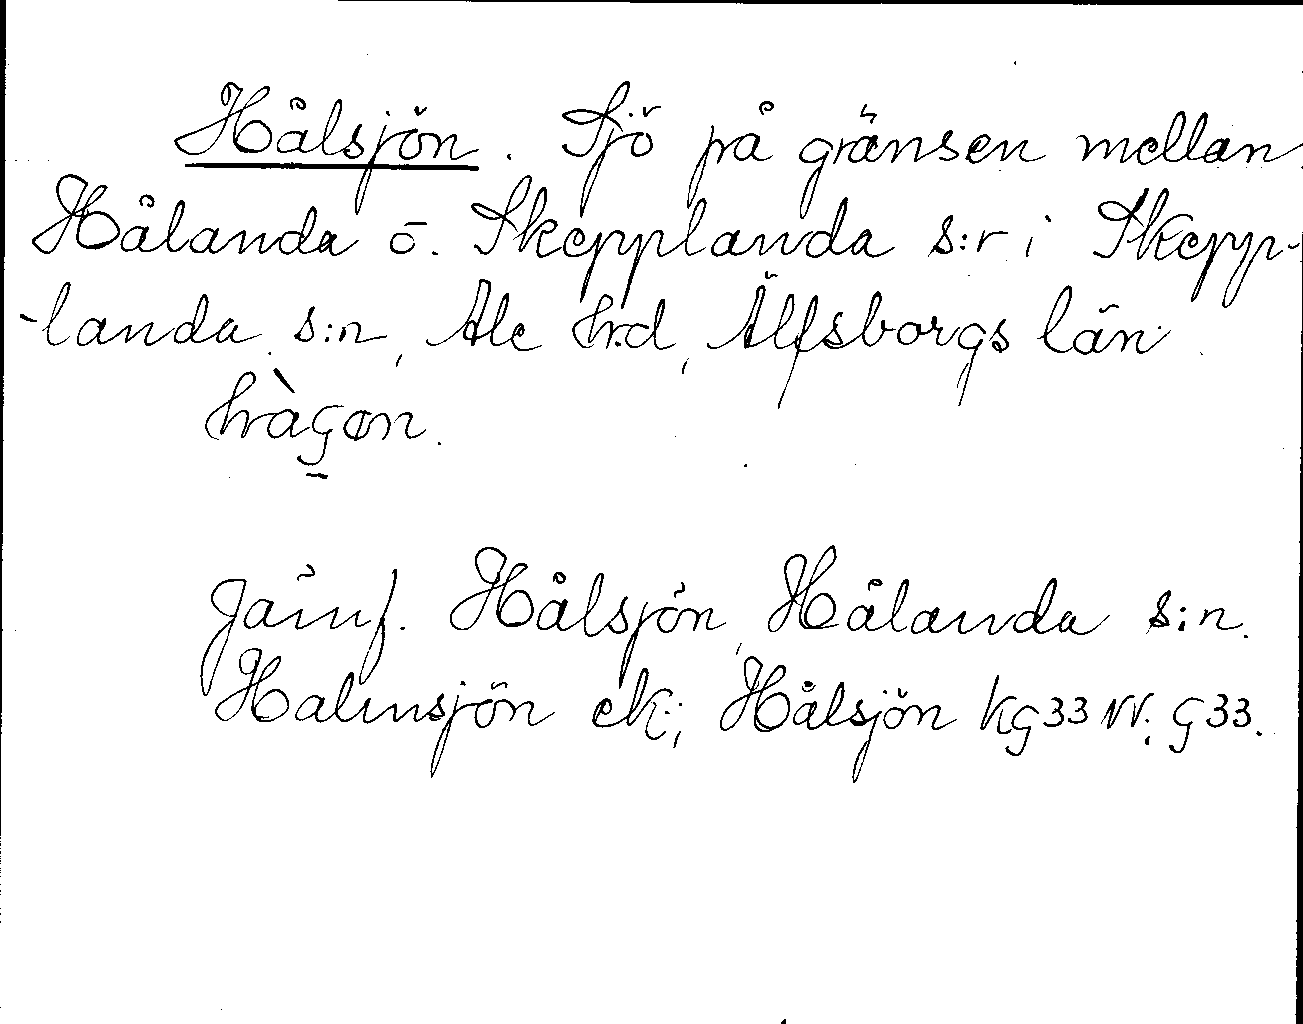 Hålsjön. Sjö på gränsen mellan
Hålanda o. Skepplanda s:r i Skepp-
-landa s:n, Ale hrd, Älfsborgs län.
Jämf. Hålsjön, Hålanda s:n.
Halmsjön ek.; Hålsjön kg 33 NV. G 33.